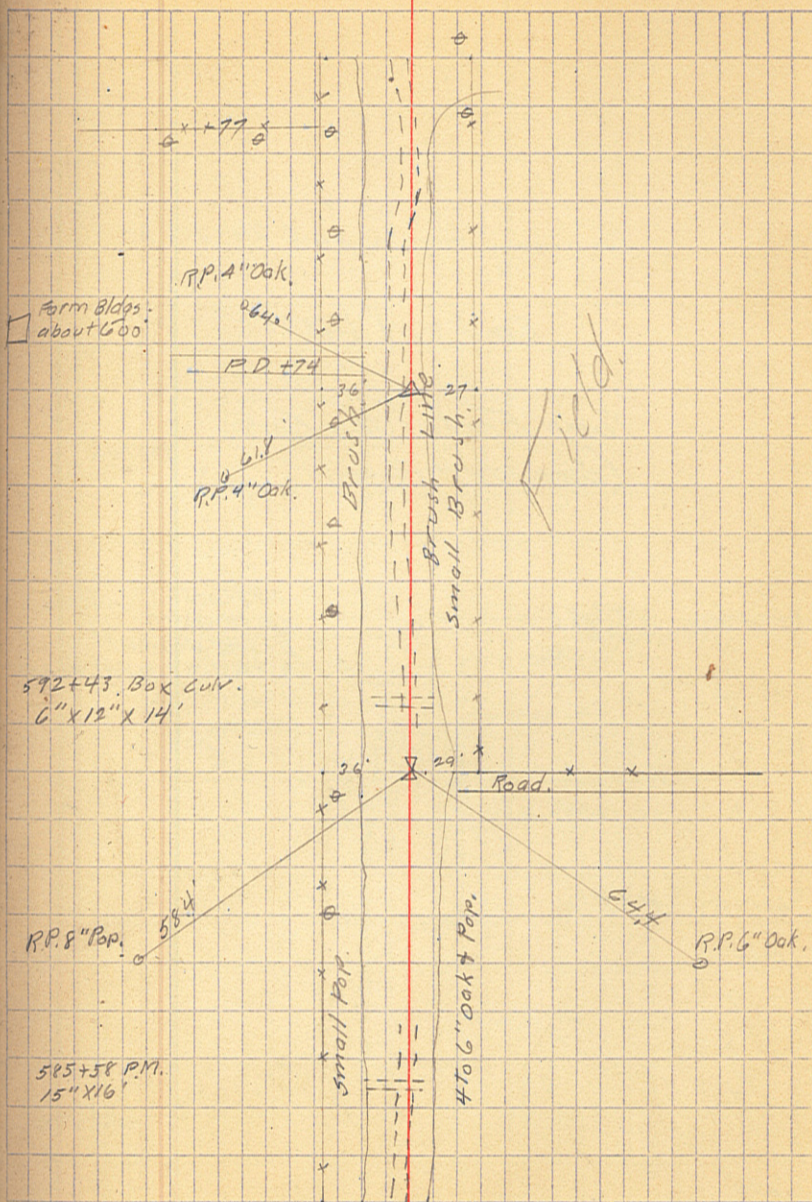 +77
R.P. 4" Oak.
64.'
Farm Bldgs.
about 600'
P.D. +74
36'
27'
61.8
R.P. 4" Oak.
Brush
Brush Line
Small Brush.
Field.
592+43 Box Culv.
6" x 12" x 14'
36'
29'
Road.
58.4'
64.4
R.P. 8" Pop.
R.P. 6" Oak.
Small Pop.
4 to 6" Oak & Pop.
585+58 P.M.
15" x 16'